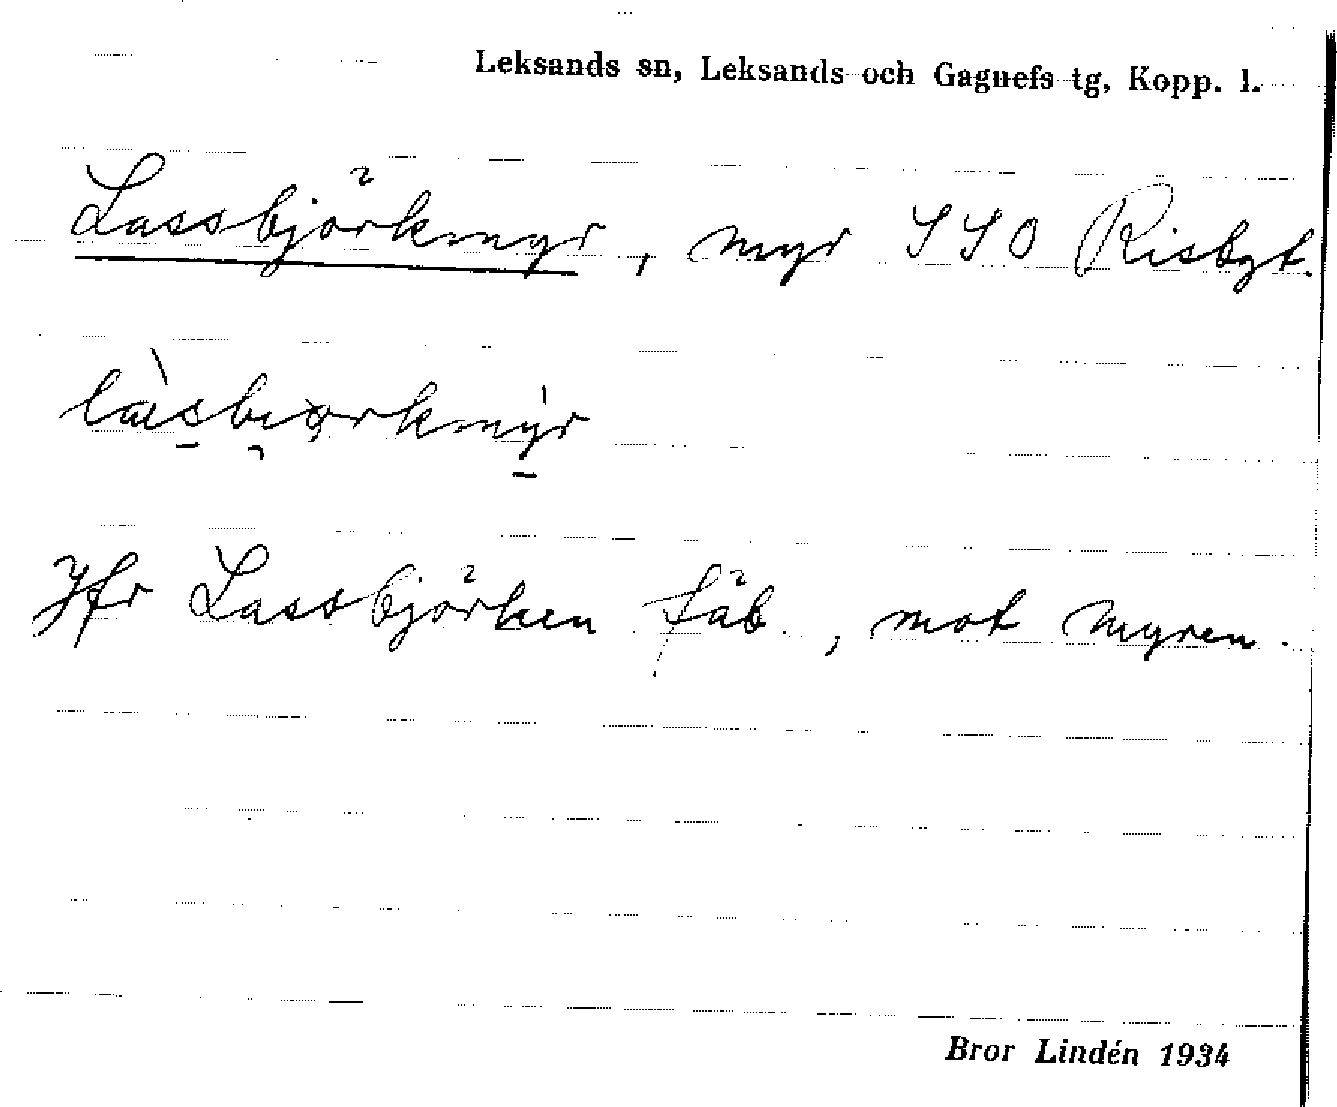 Leksands sn, Leksands och Gagnefs tg, Kopp. l.
Lassbjörkmyr, myr SSO Risbyt.
Jfr Lassbjörken fäb., mot myren.
Bror Lindén 1934